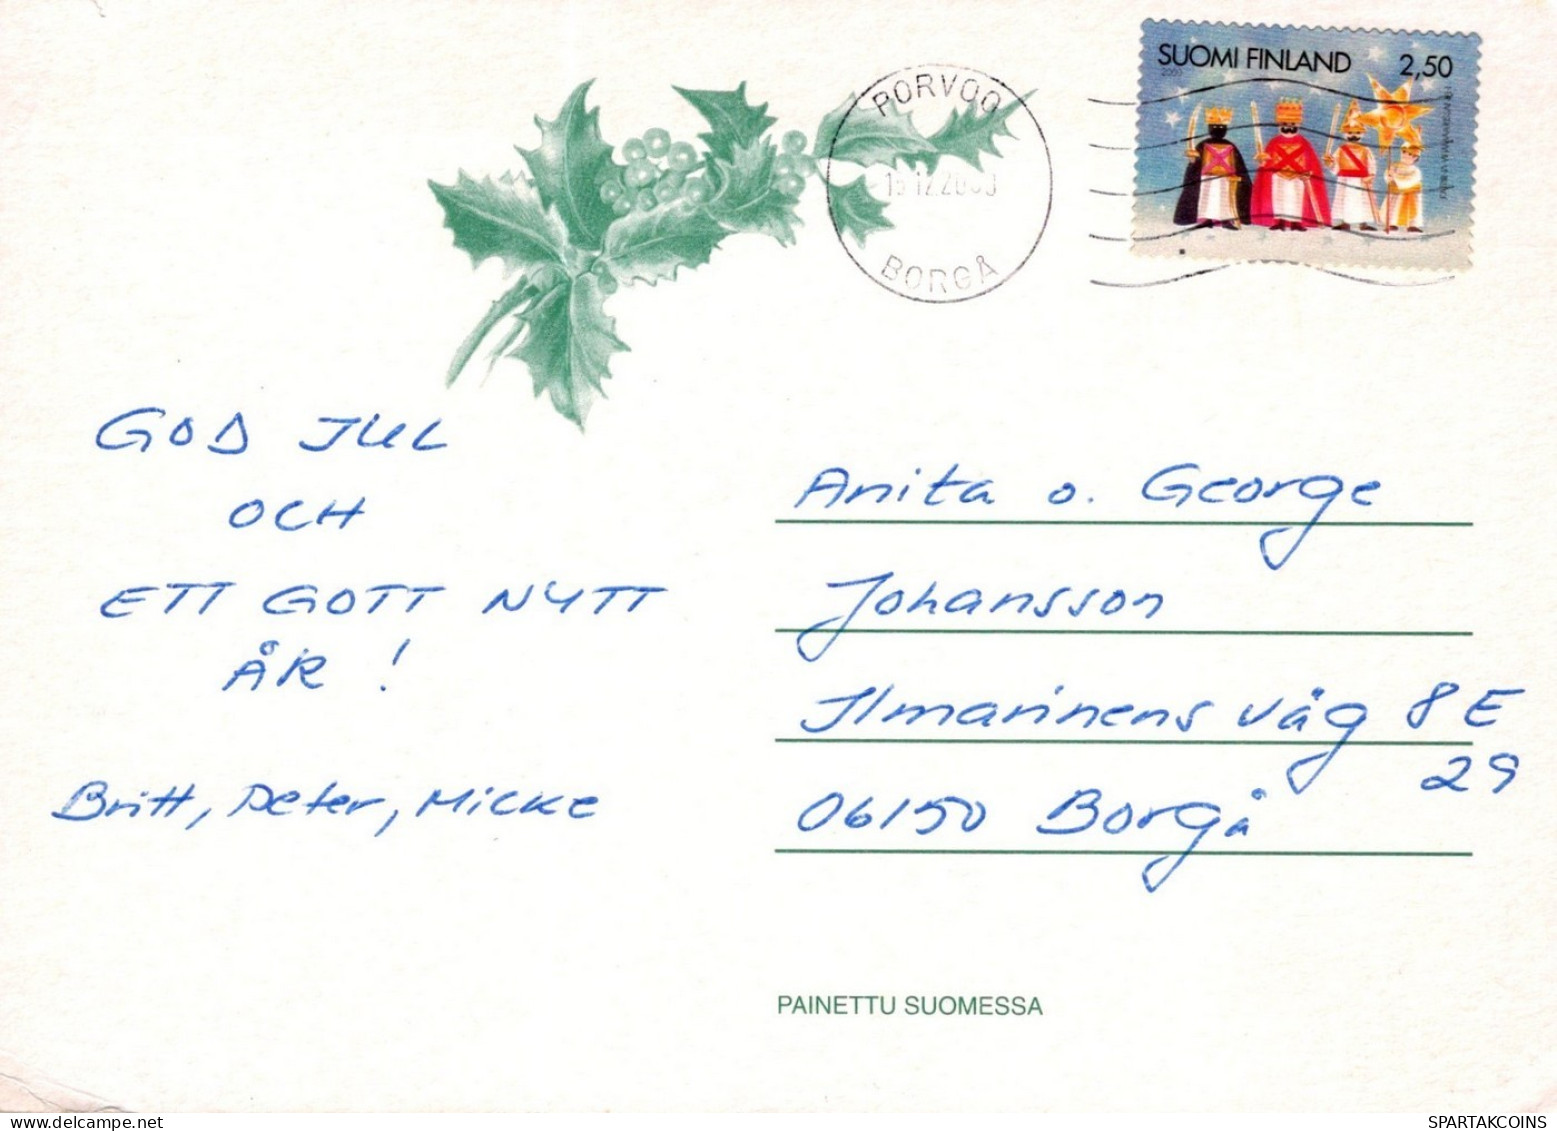 SUOMI FINLAND 2,50
2000
PORVOO
BORGÅ
GOD JUL
OCH
ETT GOTT NYTT
ÅR !
Britt, Peter, Micke
Anita o. George
Johansson
Ilmarinens väg 8 E
29
06150 Borgå
PAINETTU SUOMESSA
SPARTAKCOINS